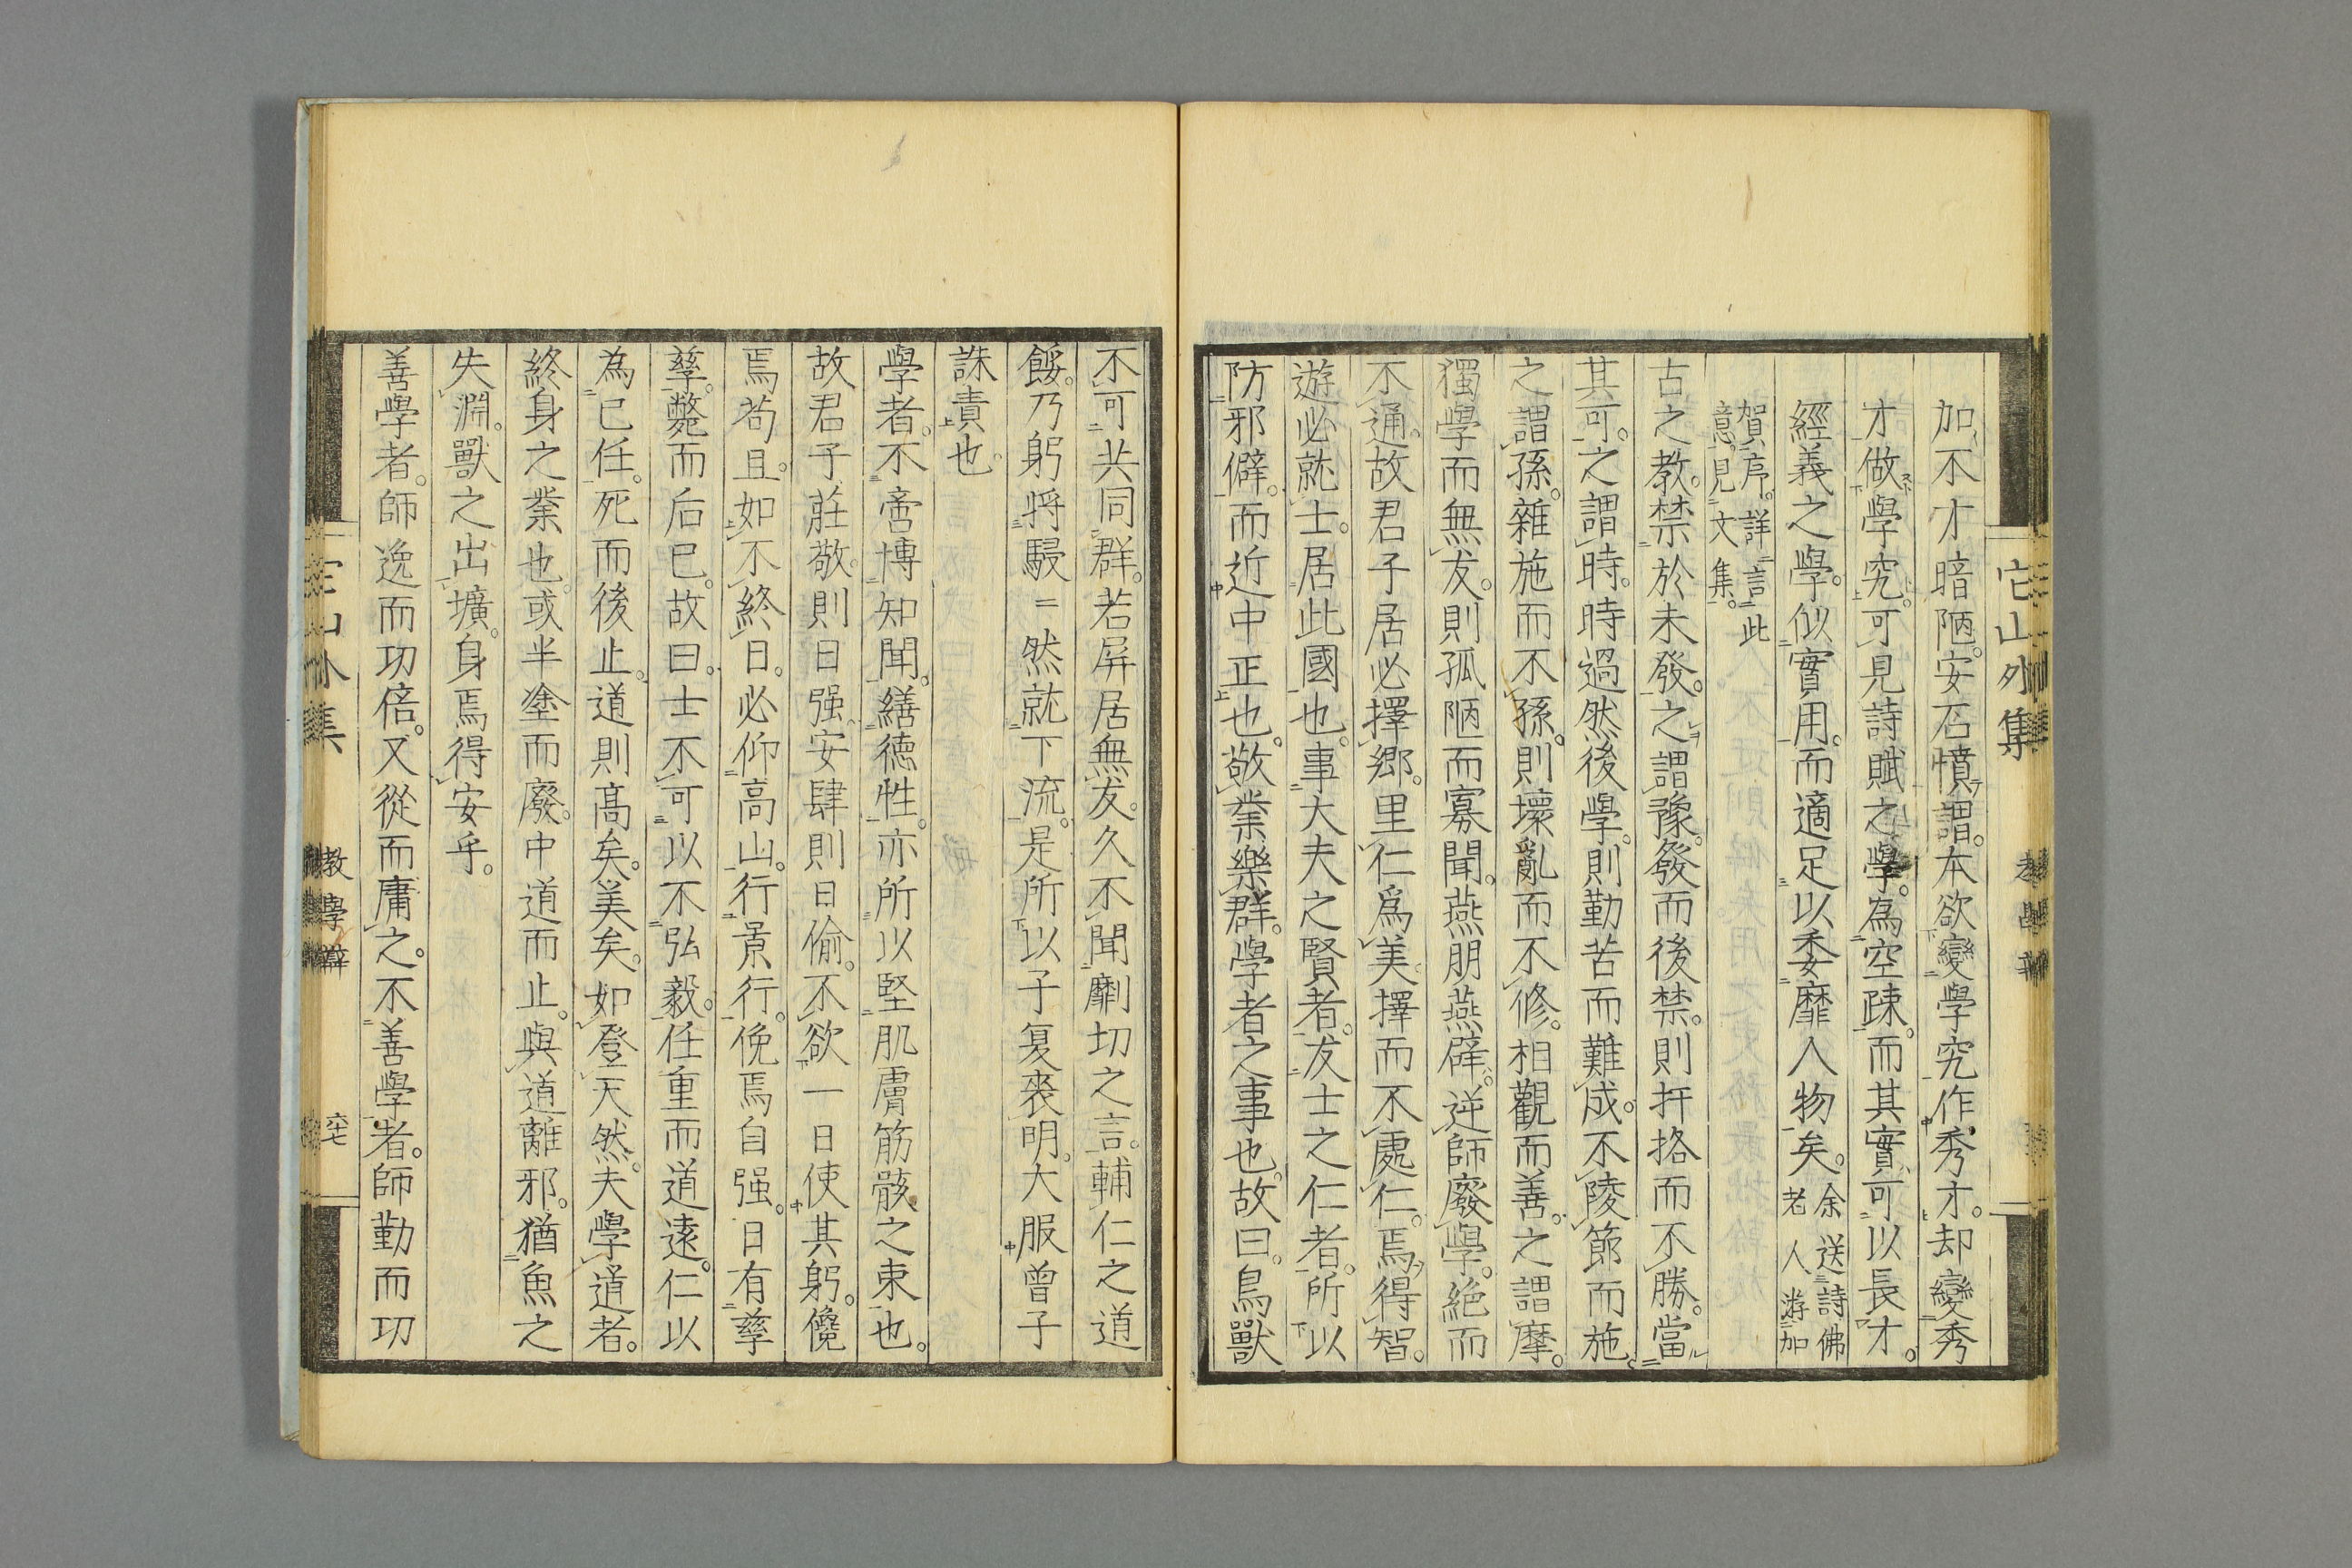 它山外集
加不才暗陋。安石憤謂。本欲變學究作秀才。却變秀
才做學究。可見詩賦之學。為空疎。而其實可以長才。
經義之學。似實用。而適足以委靡人物矣。余送詩佛老人游加
賀序。詳言此意。見文集。
古之教。禁於未發。之謂豫。發而後禁。則扞挌而不勝。當
其可。之謂時。時過然後學。則勤苦而難成。不陵節而施。
之謂孫。雜施而不孫。則壞亂而不修。相觀而善。之謂摩。
獨學而無友。則孤陋而寡聞。燕朋燕辟。逆師廢學。絕而
不通。故君子居必擇鄉。里仁爲美。擇而不處仁。焉得智。
遊必就士。居此國也。事大夫之賢者。友士之仁者。所以
防邪僻。而近中正也。敬業樂群。學者之事也。故曰。鳥獸
不可共同群。若屏居無友。久不聞劘切之言。輔仁之道
餒。乃躬將駸〻然就下流。是所以子夏喪明。大服曾子
誅責也。
學者。不啻博知聞。繕德性。亦所以堅肌膚筋骸之束也。
故君子莊敬。則日强。安肆則日偷。不欲一日使其躬。儳
焉苟且。如不終日。必仰高山。行景行。俛焉自强。日有孳
孳。斃而后已。故曰。士不可以不弘毅。任重而道遠。仁以
為已任。死而後止。道則高矣。美矣。如登天然。夫學道者。
終身之業也。或半塗而廢。中道而止。與道離邪。猶魚之
失淵。獸之出壙。身焉得安乎。
善學者。師逸而功倍。又從而庸之。不善學者。師勤而功
教學辯
六七